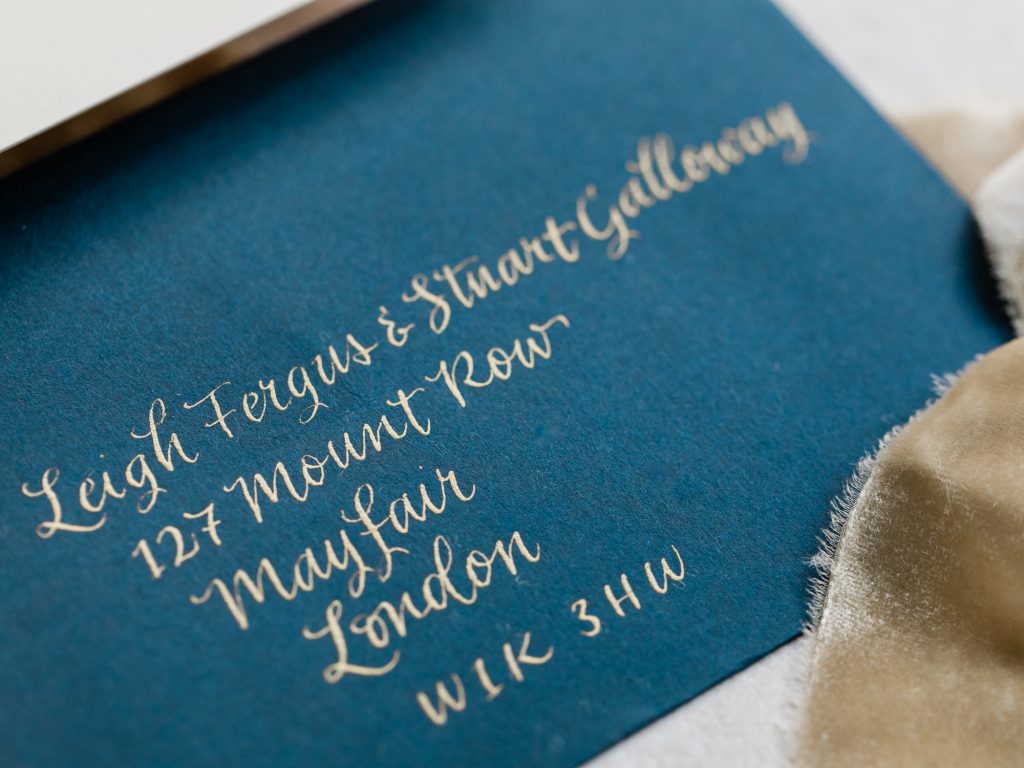 Leigh Fergus & Stuart Galloway
127 Mount Row
Mayfair
London
W1K 3HW